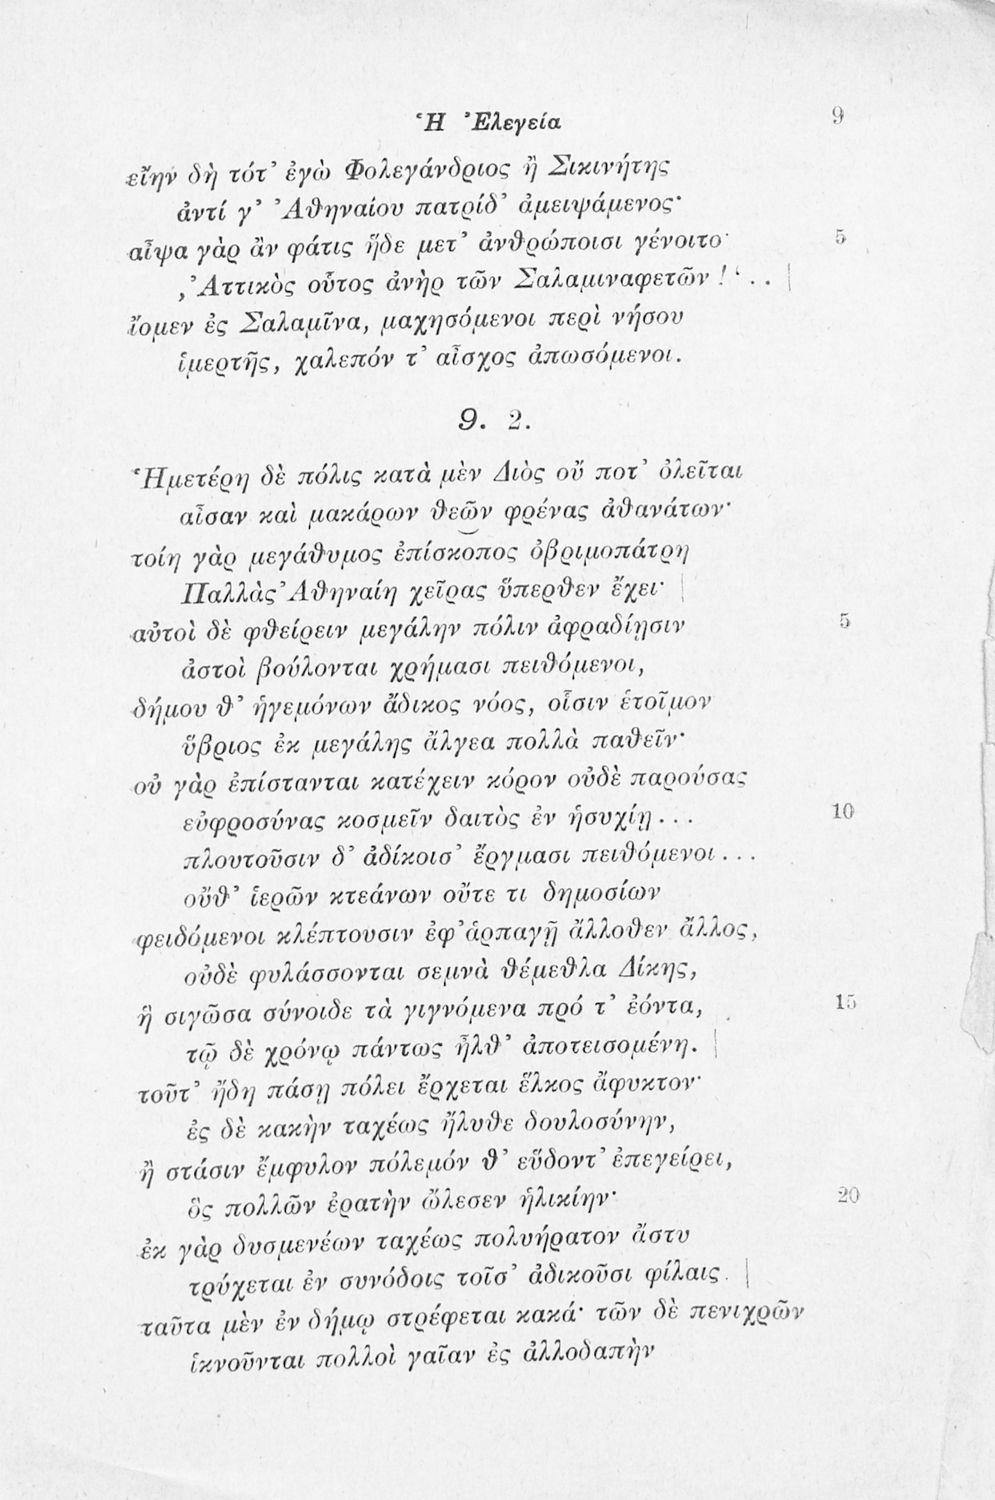 Ἡ Ἐλεγεία 9
εἴην δὴ τότ’ ἐγὼ Φολεγάνδριος ἢ Σικινήτης
ἀντί γ’ Ἀθηναίου πατρίδ’ ἀμειψάμενος·
αἶψα γὰρ ἂν φάτις ἥδε μετ’ ἀνθρώποισι γένοιτο· 5
‚Ἀττικὸς οὗτος ἀνὴρ τῶν Σαλαμιναφετῶν!‘..
ἴομεν ἐς Σαλαμῖνα, μαχησόμενοι περὶ νήσου
ἱμερτῆς, χαλεπόν τ’ αἶσχος ἀπωσόμενοι.
9. 2.
Ἡμετέρη δὲ πόλις κατὰ μὲν Διὸς οὔ ποτ’ ὀλεῖται
αἶσαν καὶ μακάρων θεῶν φρένας ἀθανάτων·
τοίη γὰρ μεγάθυμος ἐπίσκοπος ὀβριμοπάτρη
Παλλὰς Ἀθηναίη χεῖρας ὕπερθεν ἔχει·
αὐτοὶ δὲ φθείρειν μεγάλην πόλιν ἀφραδίῃσιν 5
ἀστοὶ βούλονται χρήμασι πειθόμενοι,
δήμου θ’ ἡγεμόνων ἄδικος νόος, οἷσιν ἑτοῖμον
ὕβριος ἐκ μεγάλης ἄλγεα πολλὰ παθεῖν·
οὐ γὰρ ἐπίστανται κατέχειν κόρον οὐδὲ παρούσας
εὐφροσύνας κοσμεῖν δαιτὸς ἐν ἡσυχίῃ... 10
πλουτοῦσιν δ’ ἀδίκοισ’ ἔργμασι πειθόμενοι...
οὔθ’ ἱερῶν κτεάνων οὔτε τι δημοσίων
φειδόμενοι κλέπτουσιν ἐφ’ ἁρπαγῇ ἄλλοθεν ἄλλος,
οὐδὲ φυλάσσονται σεμνὰ θέμεθλα Δίκης,
ἣ σιγῶσα σύνοιδε τὰ γιγνόμενα πρό τ’ ἐόντα, 15
τῷ δὲ χρόνῳ πάντως ἦλθ’ ἀποτεισομένη.
τοῦτ’ ἤδη πάσῃ πόλει ἔρχεται ἕλκος ἄφυκτον·
ἐς δὲ κακὴν ταχέως ἤλυθε δουλοσύνην,
ἢ στάσιν ἔμφυλον πόλεμόν θ’ εὕδοντ’ ἐπεγείρει,
ὃς πολλῶν ἐρατὴν ὤλεσεν ἡλικίην· 20
ἐκ γὰρ δυσμενέων ταχέως πολυήρατον ἄστυ
τρύχεται ἐν συνόδοις τοῖσ’ ἀδικοῦσι φίλαις.
ταῦτα μὲν ἐν δήμῳ στρέφεται κακά· τῶν δὲ πενιχρῶν
ἱκνοῦνται πολλοὶ γαῖαν ἐς ἀλλοδαπὴν